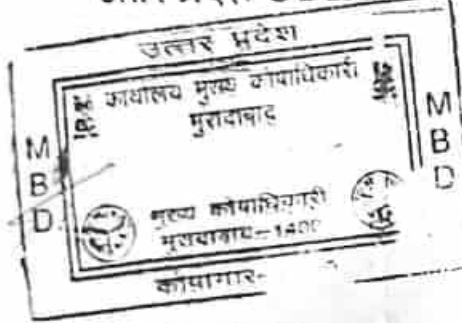 उत्तर प्रदेश
कार्यालय मुख्य कोषाधिकारी
मुरादाबाद
M
B
D
M
B
D
मुख्य कोषाधिकारी
मुरादाबाद-1400
कोषागार-